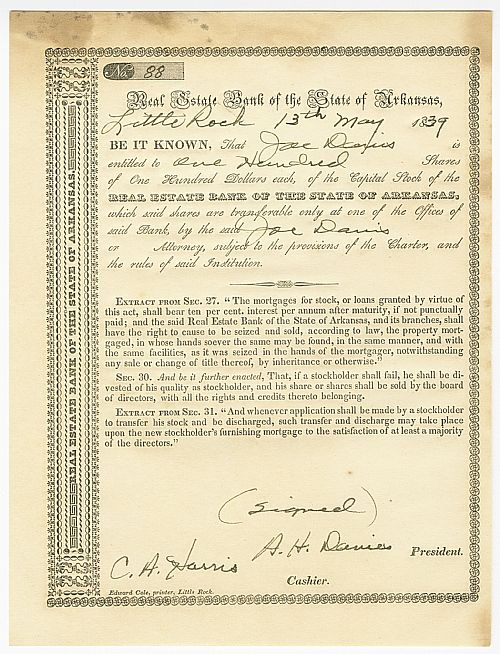 No. 88
Real Estate Bank of the State of Arkansas,
Little Rock 13th May 1839
BE IT KNOWN, That Joe Davis is
entitled to One Hundred Shares
of One Hundred Dollars each, of the Capital Stock of the
REAL ESTATE BANK OF THE STATE OF ARKANSAS,
which said shares are transferable only at one of the Offices of
said Bank, by the said Joe Davis
or Attorney, subject to the provisions of the Charter, and
the rules of said Institution.
EXTRACT FROM SEC. 27. "The mortgages for stock, or loans granted by virtue of
this act, shall bear ten per cent. interest per annum after maturity, if not punctually
paid; and the said Real Estate Bank of the State of Arkansas, and its branches, shall
have the right to cause to be seized and sold, according to law, the property mort-
gaged, in whose hands soever the same may be found, in the same manner, and with
the same facilities, as it was seized in the hands of the mortgager, notwithstanding
any sale or change of title thereof, by inheritance or otherwise."
SEC. 30. And be it further enacted, That, if a stockholder shall fail, he shall be di-
vested of his quality as stockholder, and his share or shares shall be sold by the board
of directors, with all the rights and credits thereto belonging.
EXTRACT FROM SEC. 31. "And whenever application shall be made by a stockholder
to transfer his stock and be discharged, such transfer and discharge may take place
upon the new stockholder's furnishing mortgage to the satisfaction of at least a majority
of the directors."
(Signed)
A. H. Davies President.
C. A. Harris
Cashier.
Edward Cole, printer, Little Rock.
REAL ESTATE BANK OF THE STATE OF ARKANSAS.